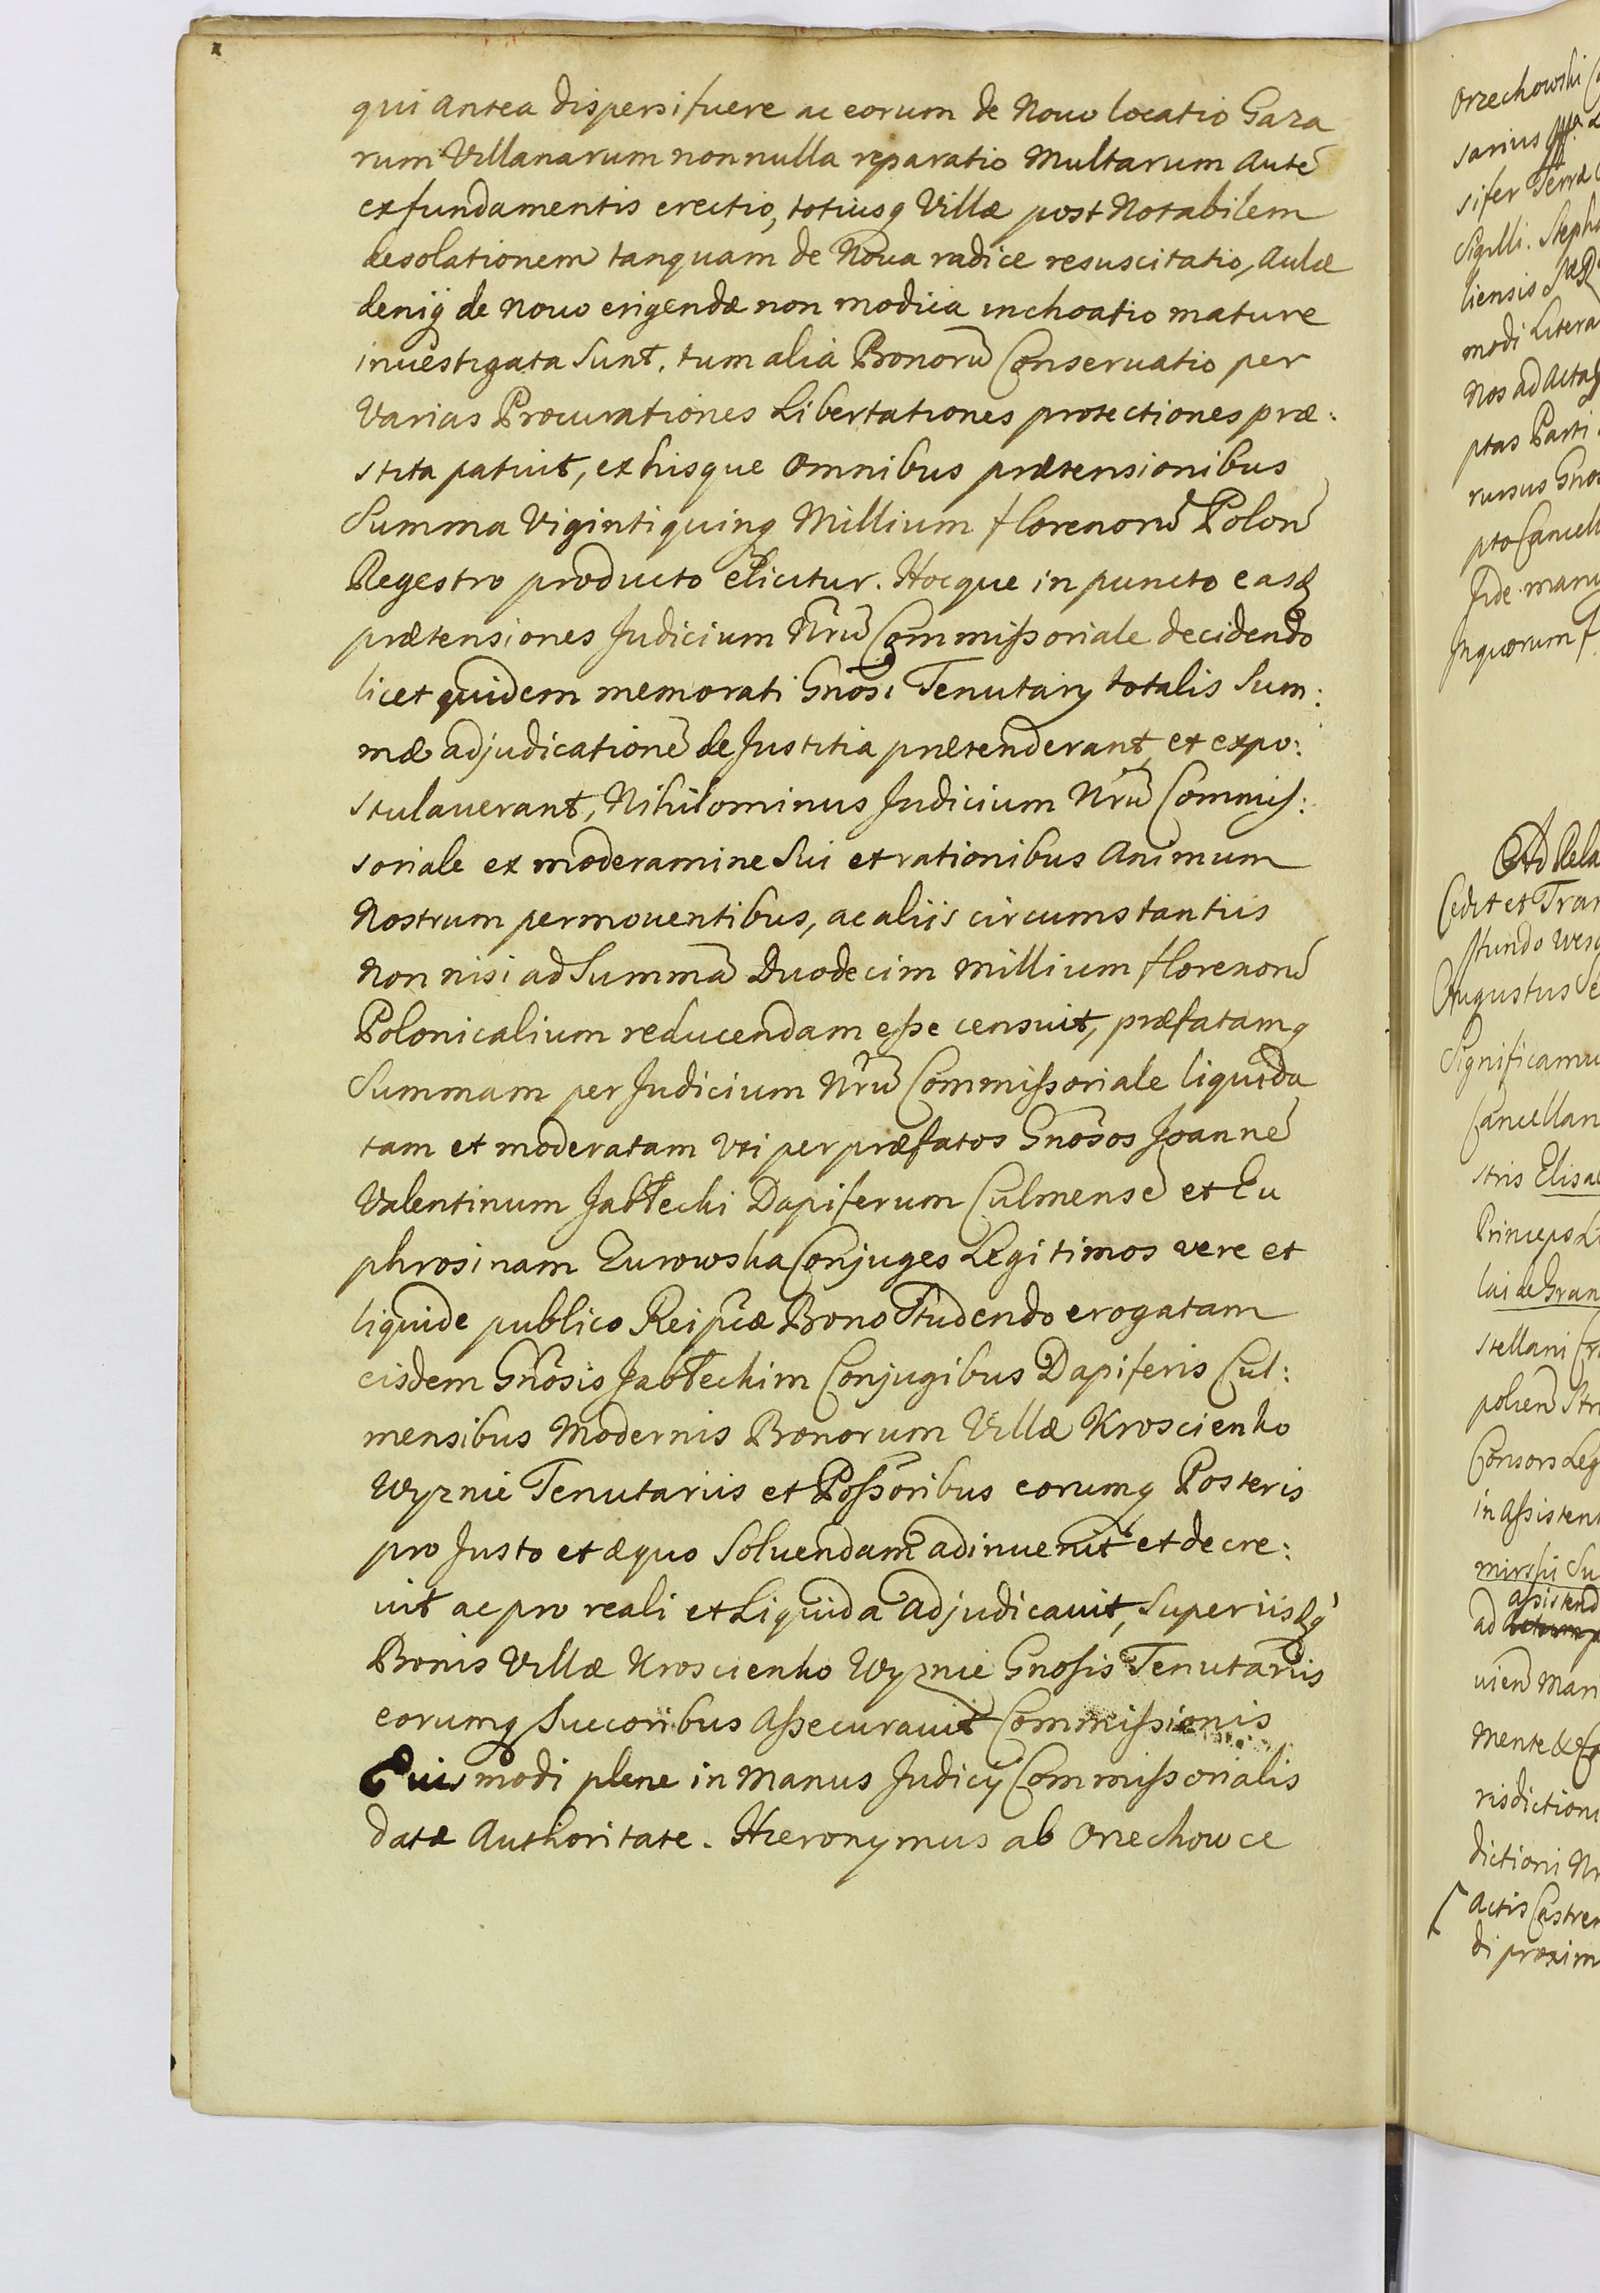 qui antea dispersi fuere ac eorum de Novo locatio Gaza
rum Villanarum nonnulla reparatio Multarum Autē
ex fundamentis erectio, totiusq Villæ post Notabilem
desolationem tanquam de Noua radice resuscitatio, Aulæ
deniq de nouo erigendæ non modica inchoatio mature
inuestigata Sunt, tum alia Bonorū Conseruatio per
Varias Procurationes Libertationes protectiones præ:
stita patuit, ex hisque omnibus prætensionibus
Summa Vigintiquinq Millium florenorū Polon̄
Regestro producto elicitur. Hocque in puncto easd
prætensiones Judicium Nrū Commissoriale decidendo
licet quidem memorati Gnosi Tenutarÿ totalis Sum:
mæ adjudicationē de Justitia prætenderant, et expo:
stulauerant, Nihilominus Judicium Nrū Commis:
soriale ex moderamine Sui et rationibus Animum
Nostrum permouentibus, ac aliis circumstantiis
Non nisi ad Summā Duodecim Millium florenorū
Polonicalium reducendam esse censuit, præfatamq
Summam per Judicium Nrū Commissoriale liquida
tam et moderatam Vti per præfatos Gnosos Joannē
Valentinum Jabłecki Dapiferum Culmensē et Eu
phrosinam Zurowska Conjuges Legitimos vere et
liquide publico Reipcæ Bono Studendo erogatam
eisdem Gnosis Jabłeckim Conjugibus Dapiferis Cul:
mensibus Modernis Bonorum Villæ Kroscienko
Wyznie Tenutariis et Possoribus eorumq Posteris
pro Justo et æquo Soluendam adinuenit et decre:
uit ac pro reali et Liquida adjudicauit, Super iisdq
Bonis Villæ Kroscienko Wyznie Gnosis Tenutariis
eorumq Succoribus Assecurauit Commissionis
Euismodi plene in Manus Judicÿ Commissorialis
datæ Authoritate. Hieronymus ab Orzechowce
Orzechowski
sarius
sifer Terræ
Sigilli. Steph
liensis
modi Litera
Nos ad Acta
ptas Parti
rursus Gno
pto Cancell
fide manu
Inquorum f
Ad Rela
Cedit et Tran
Augustus Se
Significamu
Cancellan
stris Elisa
Princeps L
lai de Gran
stellani Cr
polien Str
Consors Leg
in Assisten
mirski Su
assistend
ad
uien Mari
Mente &
risdictioni
dictioni Nr
Actis Castren
di proxim